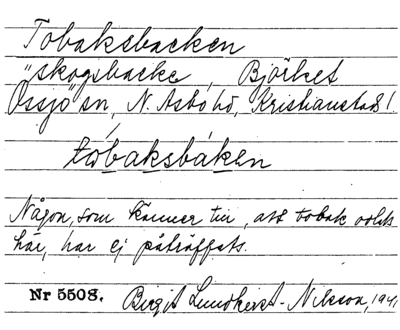 Tobaksbacken
"skogsbacke", Björket
Össjö sn, N. Åsbo hd, Kristianstad l.
tώbaksbàken
Någon, som känner till, att tobak odlats
här, har ej påträffats.
Nr 5508. Birgit Lundkvist-Nilsson, 1941